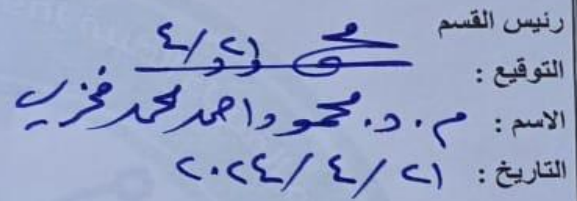 رئيس القسم
التوقيع : ٤/٢١
الاسم : م.د. محمود احمد محمد فخري
التاريخ : ٢٠٢٤/٤/٢١